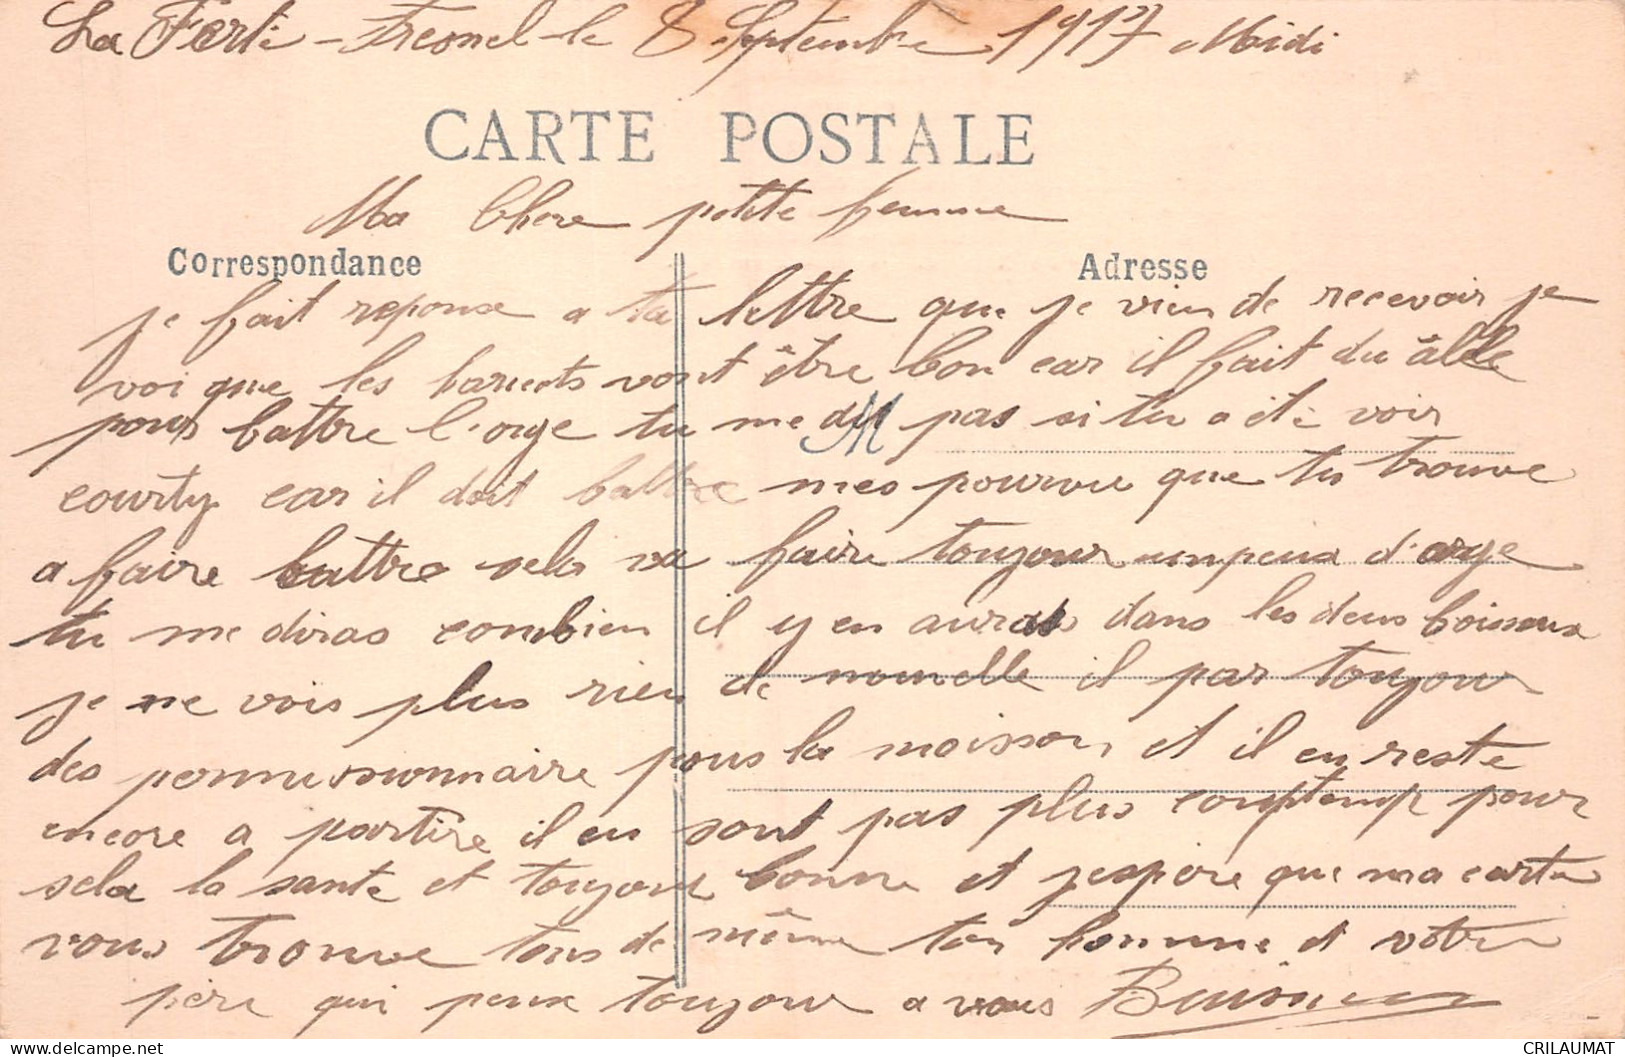 La Ferté-Fresnel le 8 Septembre 1917 Midi
CARTE POSTALE
Ma Chere petite femme
Correspondance
Adresse
je fait reponse a ta lettre que je vien de recevoir je
voi que les haricots vont être bon car il fait du âlle
pour battre l'orge tu me dit pas si tu a été voir
M
courty car il doit battre mes pourvu que tu trouve
a faire battre sela va faire toujour un peux d'orge
tu me diras combien il y en aurat dans les deus boisseux
je ne vois plus rien de nouvelle il par toujour
des permissionnaire pour la moisson et il en reste
encore a partire il en sont pas plus contemp pour
sela la santé et toujour bonne et j'espère que ma carte
vous trouve tous de même ton homme et votre
père qui pense toujour a vous
CRILAUMAT